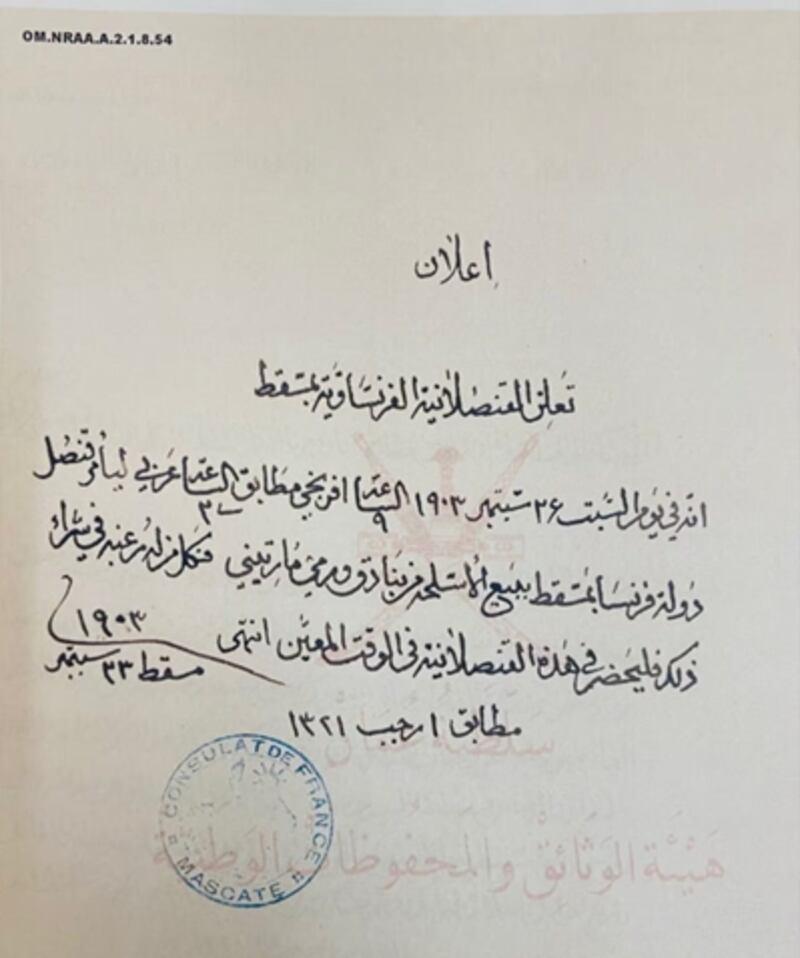 OM.NRAA.A.2.1.8.54
إعلان
تعلن القنصلاتية الفرنساوية بمسقط
انه في يوم السبت ٢٦ ستمبر ١٩٠٣ الساعة ٩ افرنجي مطابق الساعة ٣ عربي قنصل
دولة فرنسا بمسقط ببيع الأسلحة من بنادق ورمي مارتيني فكل من له رغبه في شراء
ذلك فليحضر في هذه القنصلاتية في الوقت المعين انتهى
مسقط ٢٣ سبتمبر ١٩٠٣
مطابق ١ رجب ١٣٢١
CONSULAT DE FRANCE
MASCATE
سلطنة عمان
هيئة الوثائق والمحفوظات الوطنية